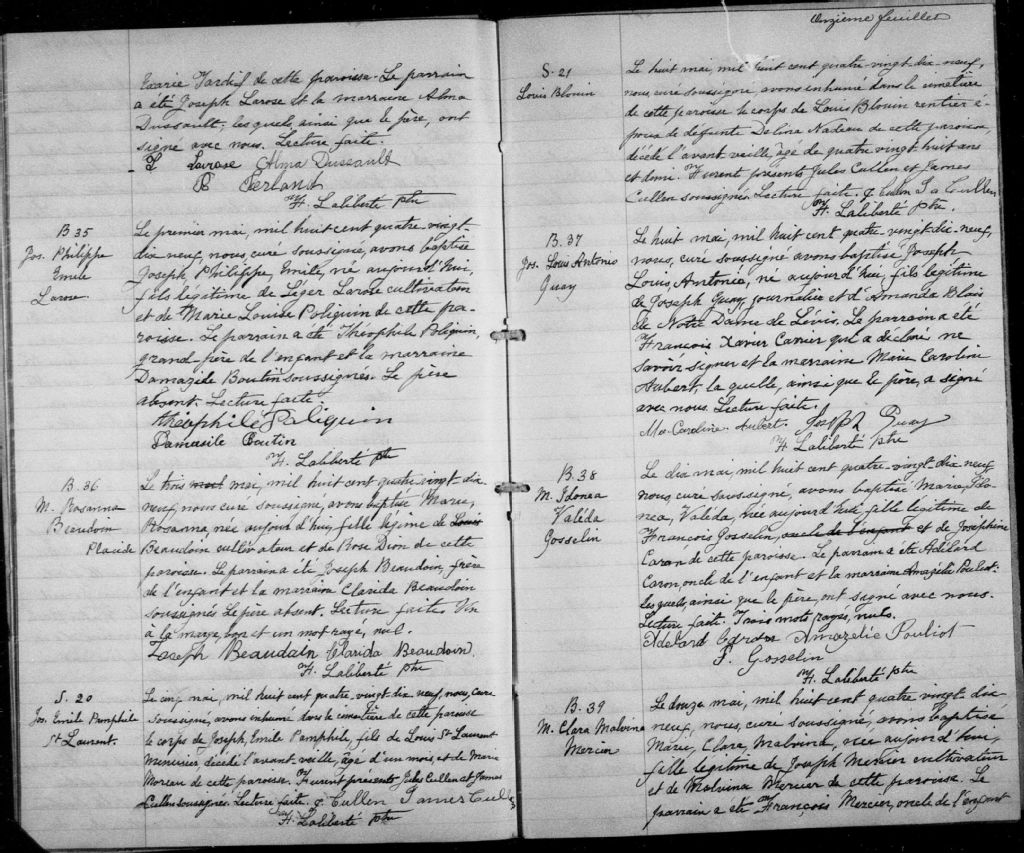 Exarie Tardif de cette paroisse. Le parrain
a été Joseph Larose et la marraine Alma
Dussault; lesquels, ainsi que le père, ont
signé avec nous. Lecture faite.
Larose Alma Dussault
Ferland
F. Laliberté ptre
B 35
Jos. Philippe
Emile
Larose
Le premier mai, mil huit cent quatre vingt-
dix neuf, nous, curé soussigné, avons baptisé
Joseph Philippe, Emile, né aujourd'hui,
fils légitime de Léger Larose cultivateur
et de Marie Louise Poliquin de cette pa-
roisse. Le parrain a été Théophile Poliquin,
grand père de l'enfant et la marraine
Damazile Boutin soussignés. Le père
absent. Lecture faite.
Théophile Poliquin
Damasile Boutin
F. Laliberté ptre
B. 36
M. Rosanna
Beaudoin
Placide
Le trois mai, mil huit cent quatre vingt dix
neuf, nous curé soussigné, avons baptisé Marie,
Rosanna, née aujourd'hui, fille légitime de Louis
Beaudoin cultivateur et de Rose Dion de cette
paroisse. Le parrain a été Joseph Beaudoin, frère
de l'enfant et la marraine Clarida Beaudoin
soussignés. Le père absent. Lecture faite. Un
à la marge, bon et un mot rayé, nul.
Joseph Beaudoin Clarida Beaudoin.
F. Laliberté ptre
S. 20
Jos. Emile Pamphile
St Laurent.
Le cinq mai, mil huit cent quatre-vingt dix neuf, nous, curé
soussigné, avons inhumé dans le cimetière de cette paroisse
le corps de Joseph, Emile Pamphile, fils de Louis St Laurent
menuisier, décédé l'avant-veille, âgé d'un mois, et de Marie
Moreau de cette paroisse. Furent présents Jules Cullen et James
Cullen soussignés. Lecture faite. J Cullen James Cullen
F. Laliberté ptre
Onzième feuillet
S. 21
Louis Blouin
Le huit mai, mil huit cent quatre vingt dix-neuf,
nous curé soussigné, avons inhumé dans le cimetière
de cette paroisse le corps de Louis Blouin rentier é-
poux de défunte Deline Nadeau de cette paroisse,
décédé l'avant veille, âgé de quatre vingt huit ans
et demi. Furent présents Jules Cullen et James
Cullen soussignés. Lecture faite. J Cullen Ja Cullen
F. Laliberté ptre.
B. 37
Jos. Louis Antonio
Guay
Le huit mai, mil huit cent quatre vingt-dix neuf,
nous, curé soussigné avons baptisé Joseph
Louis, Antonio, né aujourd'hui, fils légitime
de Joseph Guay, journalier et d'Amanda Blais
de Notre Dame de Lévis. Le parrain a été
François Xavier Carrier qui a déclaré ne
savoir signer et la marraine Marie Caroline
Aubert, laquelle, ainsi que le père, a signé
avec nous. Lecture faite.
Mie Caroline Aubert. Joseph Guay
F Laliberté ptre
B. 38
M. Idonea
Valéda
Gosselin
Le dix mai, mil huit cent quatre-vingt dix neuf
nous, curé soussigné, avons baptisé Marie, Ido-
nea, Valéda, née aujourd'hui, fille légitime de
François Gosselin, oncle de l'enfant et de Joséphine
Caron de cette paroisse. Le parrain a été Adélard
Caron, oncle de l'enfant et la marraine Amazélie Pouliot.
lesquels, ainsi que le père, ont signé avec nous.
Lecture faite. Trois mots rayés, nuls.
Adelard Caron Amazelie Pouliot
F. Gosselin
F. Laliberté ptre
B. 39
M. Clara Malvina
Mercier
Le douze mai, mil huit cent quatre vingt-dix
neuf, nous, curé soussigné, avons baptisé
Marie, Clara, Malvina, née aujourd'hui,
fille légitime de Joseph Mercier cultivateur
et de Malvina Mercier de cette paroisse. Le
parrain a été François Mercier, oncle de l'enfant